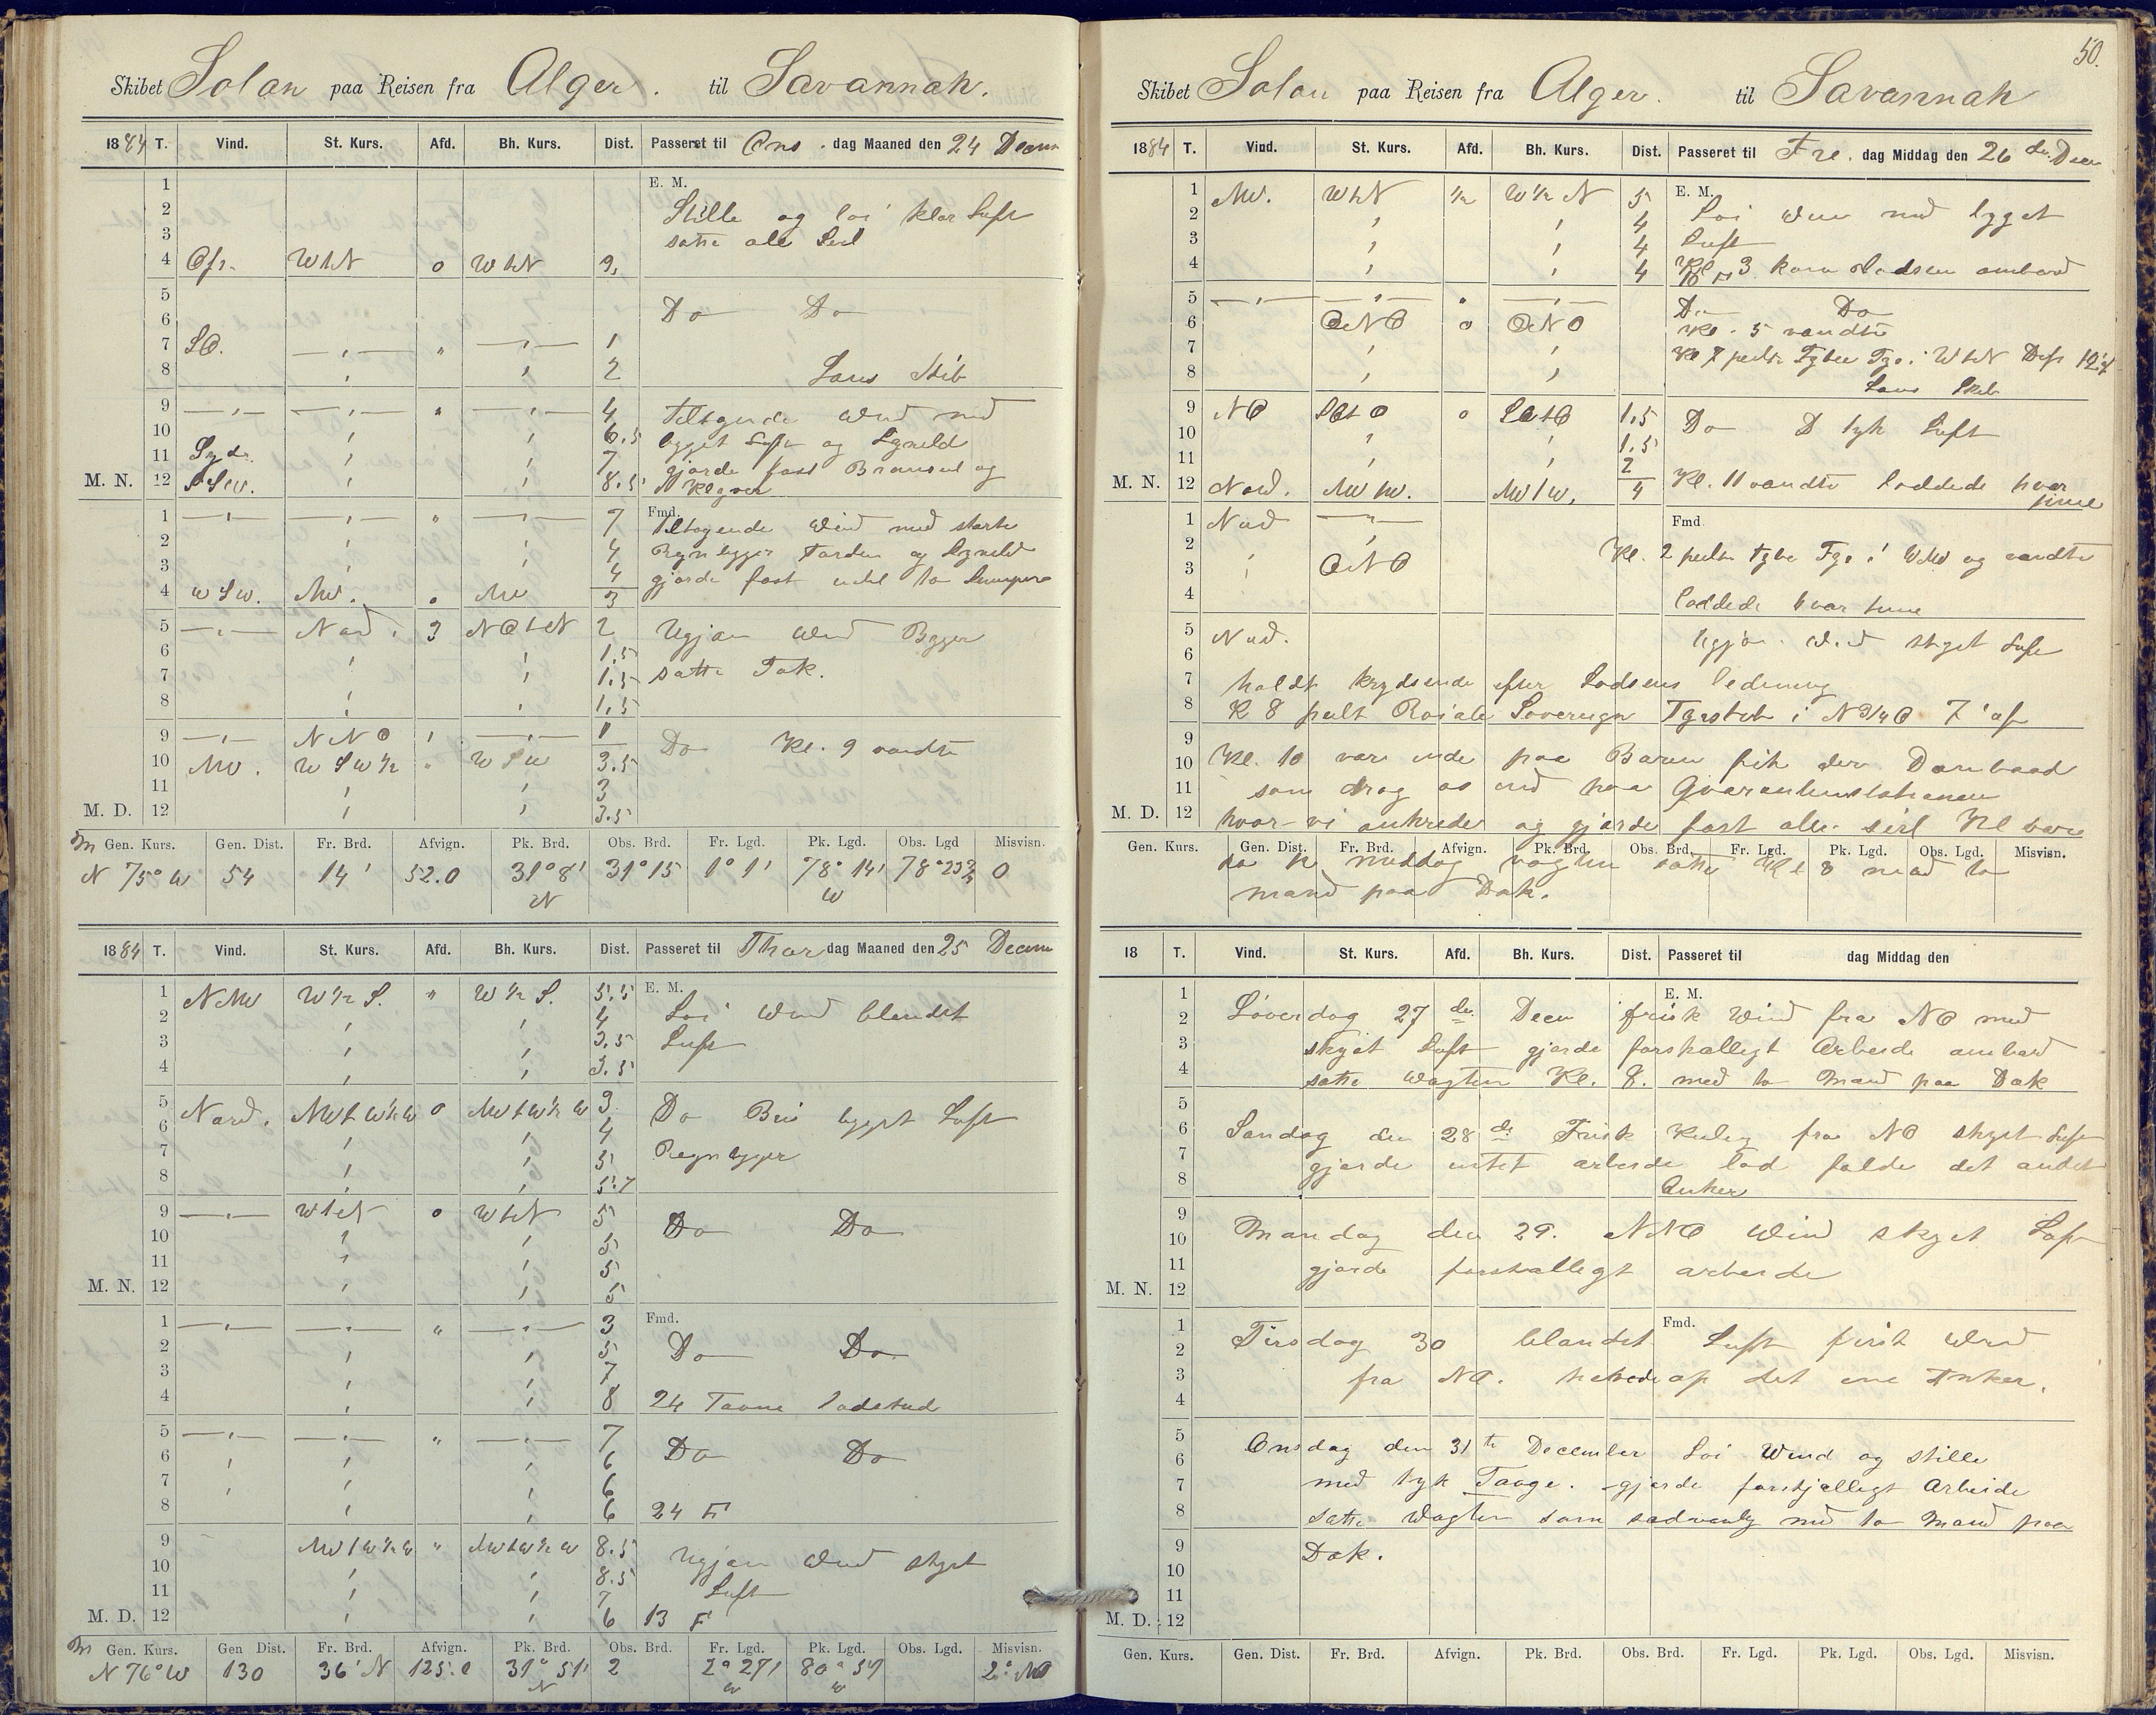 Skibet Solon paa Reisen fra Alger. til Savannah.
1884 T. Vind. St. Kurs. Afd. Bh. Kurs. Dist. Passeret til Ons. dag Maaned den 24 Decem
1 E. M.
2 Stille og loi klar Luft
3 satte alle Seil
4 Ofr. WtN o WtN 9,
5
6 Do Do
7 SO. —„— „ —„— 1
8 „ „ 2 Lens Skib
9 —„— —„— „ —„— 4 Tiltagende Wind med
10 „ „ 6.5 bygget Luft og Lyneld
11 Syd. „ „ 7 gjorde fast Bramseil og
M. N. 12 SSW. „ „ 8.5 Klyver
1 —„— —„— „ —„— 7 Fmd. Tiltagende Wind med sterke
2 „ „ 4 Regnbygger Torden og Lyneld
3 „ „ 4 gjorde fast
4 WSW. NW. o NW 3
5 —„— Nord. 3 NOtN 2 Ugjen Wind Bygger
6 „ „ 1,5
7 „ „ 1.5 satte Tok.
8 „ „ 1,5
9 —„— NNO „ —„— 1 Do Kl. 9 vendte
10 NW. WSW½ „ WSW 3.5
11 „ „ 3
M. D. 12 „ „ 3.5
M Gen. Kurs. Gen. Dist. Fr. Brd. Afvign. Pk. Brd. Obs. Brd. Fr. Lgd. Pk. Lgd. Obs. Lgd Misvisn.
N 75° W 54 14' 52.0 31° 8' N 31° 15 1° 1' 78° 14' W 78° 23 0
1884 T. Vind. St. Kurs. Afd. Bh. Kurs. Dist. Passeret til Thorsdag Maaned den 25 Decem
1 NNW W½S. „ W½S. 5.5 E. M.
2 „ „ 4 Loi Wind blandet
3 „ „ 3.5 Luft
4 „ „ 3.5
5 Nord. NWtW½W o NWtW½W 3
6 „ „ 4 Do Bris bygget Luft
7 „ „ 5 Regnbyger
8 „ „ 5.7
9 —„— WtN o WtN 5
10 „ „ 5 Do Do
11 „ „ 5
M. N. 12 „ „ 5
1 —„— —„— „ —„— 3 Fmd.
2 „ „ 5 Do Do
3 „ „ 7
4 „ „ 8 24 Favne lodskud
5 —„— —„— „ —„— 7
6 „ „ „ 6 Do Do
7 „ „ „ 6
8 „ „ 6 24 F
9 NWtW½W „ NWtW½W 8.5
10 „ „ 8.5 Ugjen Wind skyet
11 „ „ 7 Luft
M. D. 12 „ „ 6 13 F
M Gen. Kurs. Gen Dist. Fr. Brd. Afvign. Pk. Brd. Obs. Brd. Fr. Lgd. Pk. Lgd. Obs. Lgd. Misvisn.
N 76° W 130 36' N 125.0 31° 51' N 2 2° 27' W 80° 57 W 2°
50.
Skibet Solon paa Reisen fra Alger. til Savannah
1884 T. Vind. St. Kurs. Afd. Bh. Kurs. Dist. Passeret til Fre. dag Middag den 26 de. Decem
1 NW. WtN ½ W½N 5 E. M.
2 „ „ 4 Loi Wind med bygget
3 „ „ 4 Luft
4 „ „ 4 Kl 3 kom Lodsen ombord
5 —„— —„— „ —„— Do Do
6 ONO o ONO Kl. 5 vendte
7 „ „ Kl 7 peilte Tybee Fyr i WtN Dist 12'
8 „ „ Lens Skib
9 NO SOtO o SOtO 1.5
10 „ „ 1.5 Do D tyk Luft
11 „ „ 2
M. N. 12 Nord. NWtW. NWtW. 4 Kl. 11 vendte loddede hver
time
1 Nord —„— Fmd.
2 „ Kl. 2 peilte Tybe Fyr i WNW og vendte
3 „ ONO
4 loddede hver time
5 Nord. Ugjen Wind skyet Luft
6
7 holdt krydsende efter Lodsens ledning
8 K 8 peilt Roiale Soverugn Fyrskib i N¾O 7' af
9
10 Kl. 10 var inde paa Baren fik der Dambaad
11 som drog os ind paa Qvarantenestationen
M. D. 12 hvor vi ankrede og gjorde fast alle seil
Gen. Kurs. Gen. Dist. Fr. Brd. Afvign. Pk. Brd. Obs. Brd. Fr. Lgd. Pk. Lgd. Obs. Lgd. Misvisn.
middag vagten satte Kl 8 med to
mand paa Dæk.
18 T. Vind. St. Kurs. Afd. Bh. Kurs. Dist. Passeret til dag Middag den
1 E. M.
2 Löverdag 27 de. Decem frisk Wind fra NO med
3 skyet Luft gjorde forskallegt Arbeide ombord
4 satte Wagten Kl. 8. med to Mand paa Dæk
5
6 Söndag den 28 de Frisk Kuling fra NO skyet Luft
7 gjorde intet arbeide lod falde det andet
8 Anker
9
10 Mandag den 29. NNO Wind skyet Luft
11 gjorde forskallegt arbeide
M. N. 12
1 Fmd.
2 Tirsdag 30 blandet Luft frisk Wind
3 fra NO. hevede op det ene Anker.
4
5
6 Onsdag den 31te December Loi Wind og stille
7 med tyk Taage. gjorde forskjellegt Arbeide
8 satte Wagten som sedvanlig med to Mand paa
9 Dæk.
10
11
M. D. 12
Gen. Kurs. Gen. Dist. Fr. Brd. Afvign. Pk. Brd. Obs. Brd. Fr. Lgd. Pk. Lgd. Obs. Lgd. Misvisn.